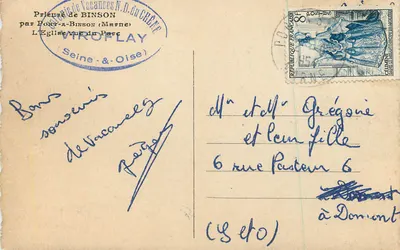 Prieuré de BINSON
par PORT-à-BINSON (Marne)
L'Eglise vue du Parc
de Vacances N.D. du CHÊNE
VIROFLAY
(Seine-&-Oise)
8F
REPUBLIQUE FRANÇAISE
POSTES
Bons
souvenirs
de Vacances
Mr et Mme Grégoire
et leur fille
6 rue Pasteur 6
à Domont
(S et O)